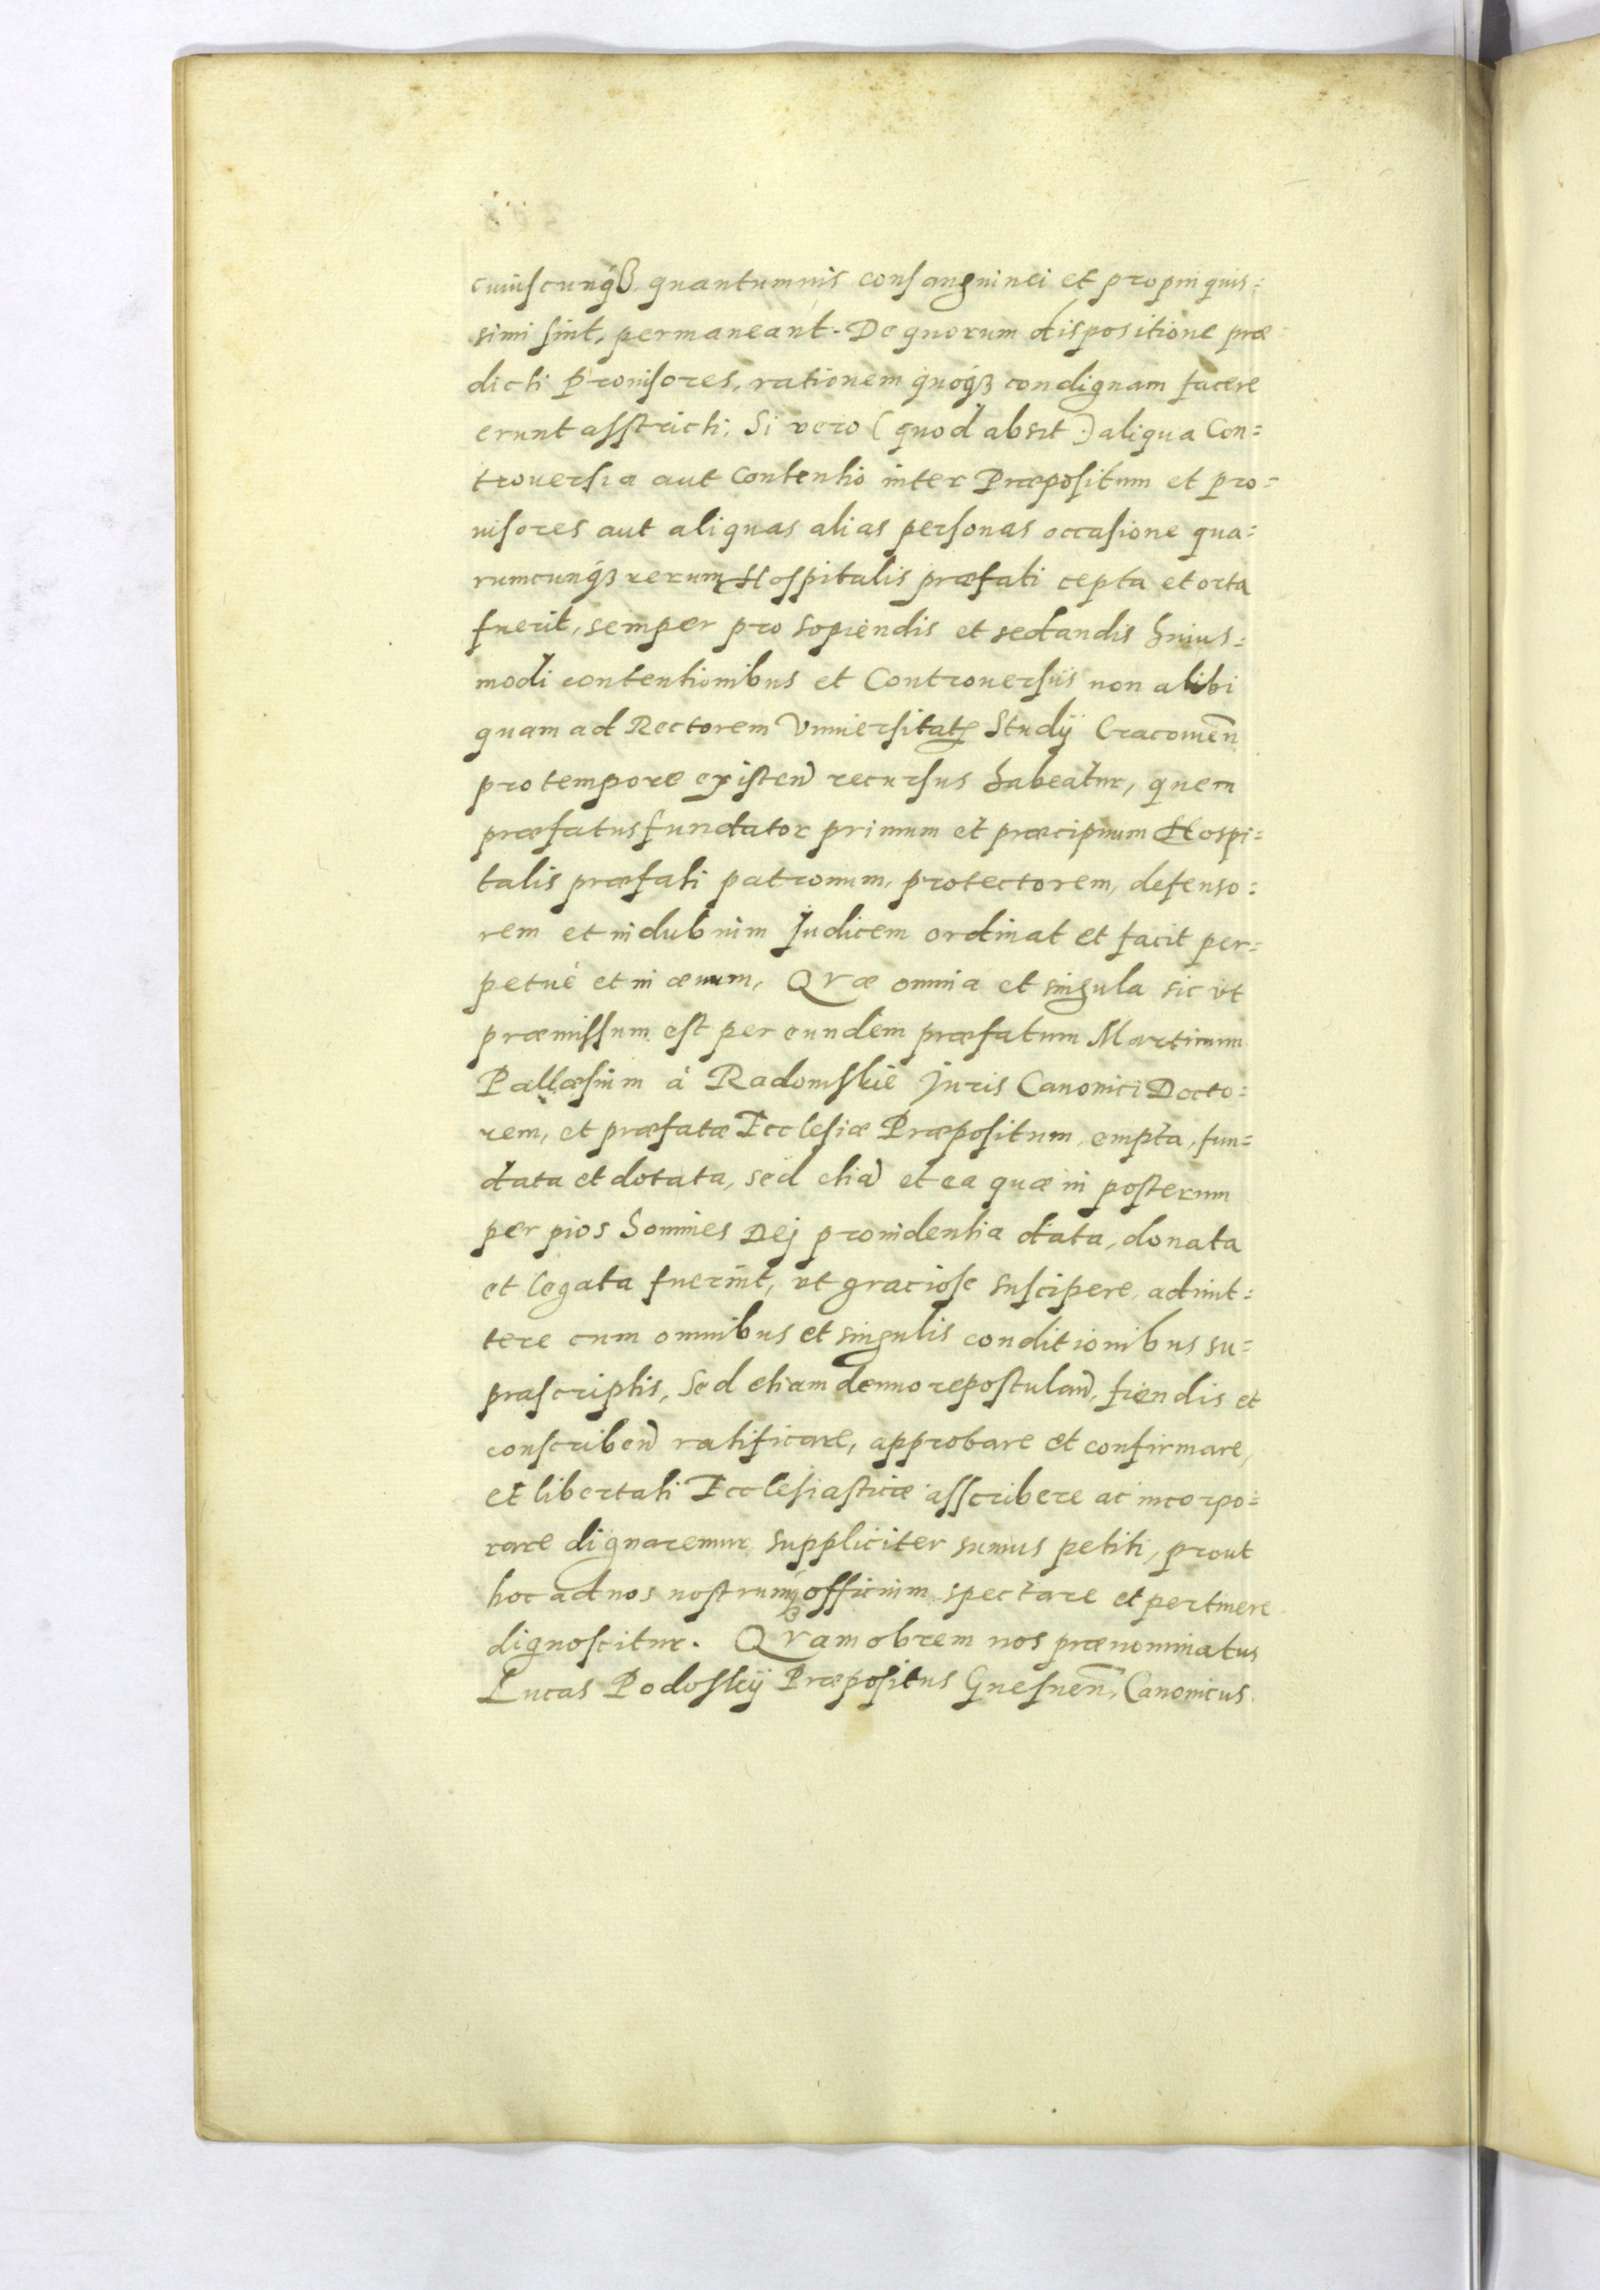 cuiuscunqȝ, quantumuis consanguinei et propinquis=
simi sint, permaneant. De quorum dispositione præ
dicti prouisores, rationem quoqȝ condignam facere
erunt asstricti; Si vero (quod absit.) aliqua Con=
trouersia aut Contentio inter Præpositum et pro=
uisores aut aliquas alias personas occasione qua=
rumcunqȝ rerum Hospitalis præfati cepta et orta
fuerit, semper pro sopiendis et sedandis huius=
modi contentionibus et Controuersiis non alibi
quam ad Rectorem Vniuersitatꝭ Studij Cracouień
pro tempore existeń recursus habeatur, quem
præfatus fundator primum et præcipuum Hospi=
talis præfati patronum, protectorem, defenso=
rem et indubium Judicem ordinat et facit per=
petuè et in æuum, Qvæ omnia et singula sic vt
præmissum est per eundem præfatum Martinum
Pallæsium à Radomskie Juris Canonici Docto=
rem, et præfatæ Ecclesiæ Præpositum, empta, fun=
data et dotata, sed etiā et ea quæ in posterum
per pios homines Dej prouidentia data, donata
et legata fuerint, vt graciose suscipere, admit=
tere cum omnibus et singulis conditionibus su=
prascriptis, sed etiam denuo repostulań, fiendis et
conscribeń ratificare, approbare et confirmare,
et libertati Ecclesiasticæ asscribere ac incorpo=
rare dignaremur suppliciter sumus petiti, prout
hoc ad nos nostrumqȝ officium spectare et pertinere
dignoscitur. Qvamobrem nos prænominatus
Lucas Podoskij Præpositus Gnesneń, Canonicus